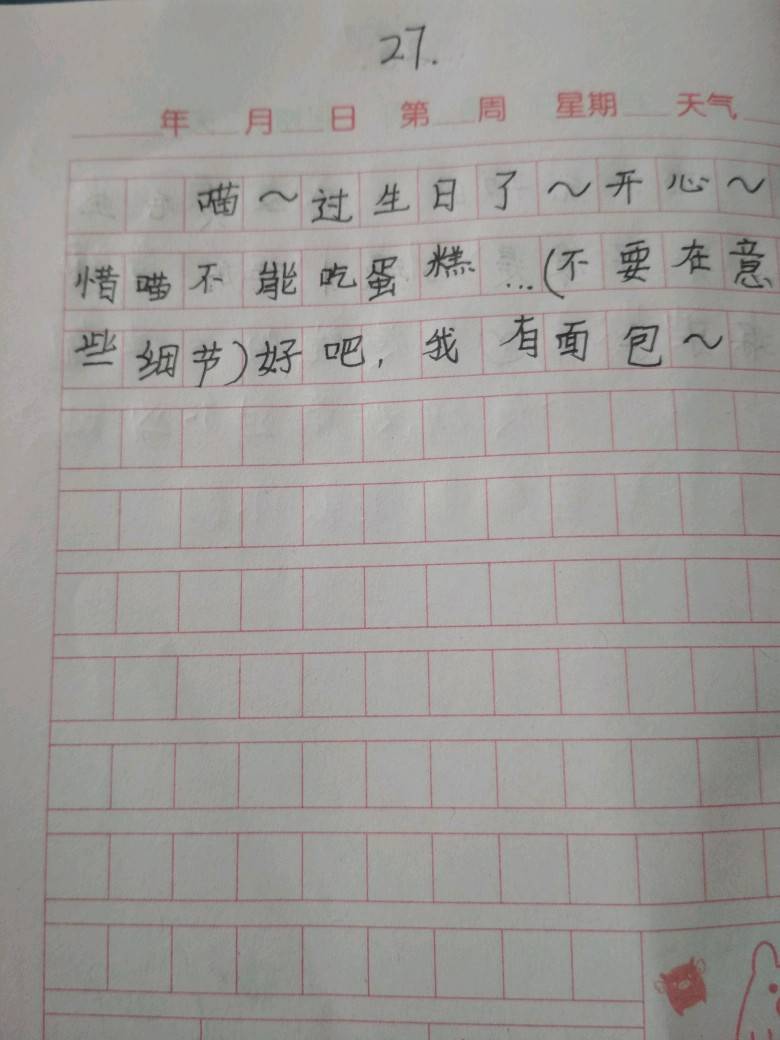 27.
年 月 日 第 周 星期 天气
喵～过生日了～开心～
惜喵不能吃蛋糕…(不要在意
些细节)好吧,我有面包～